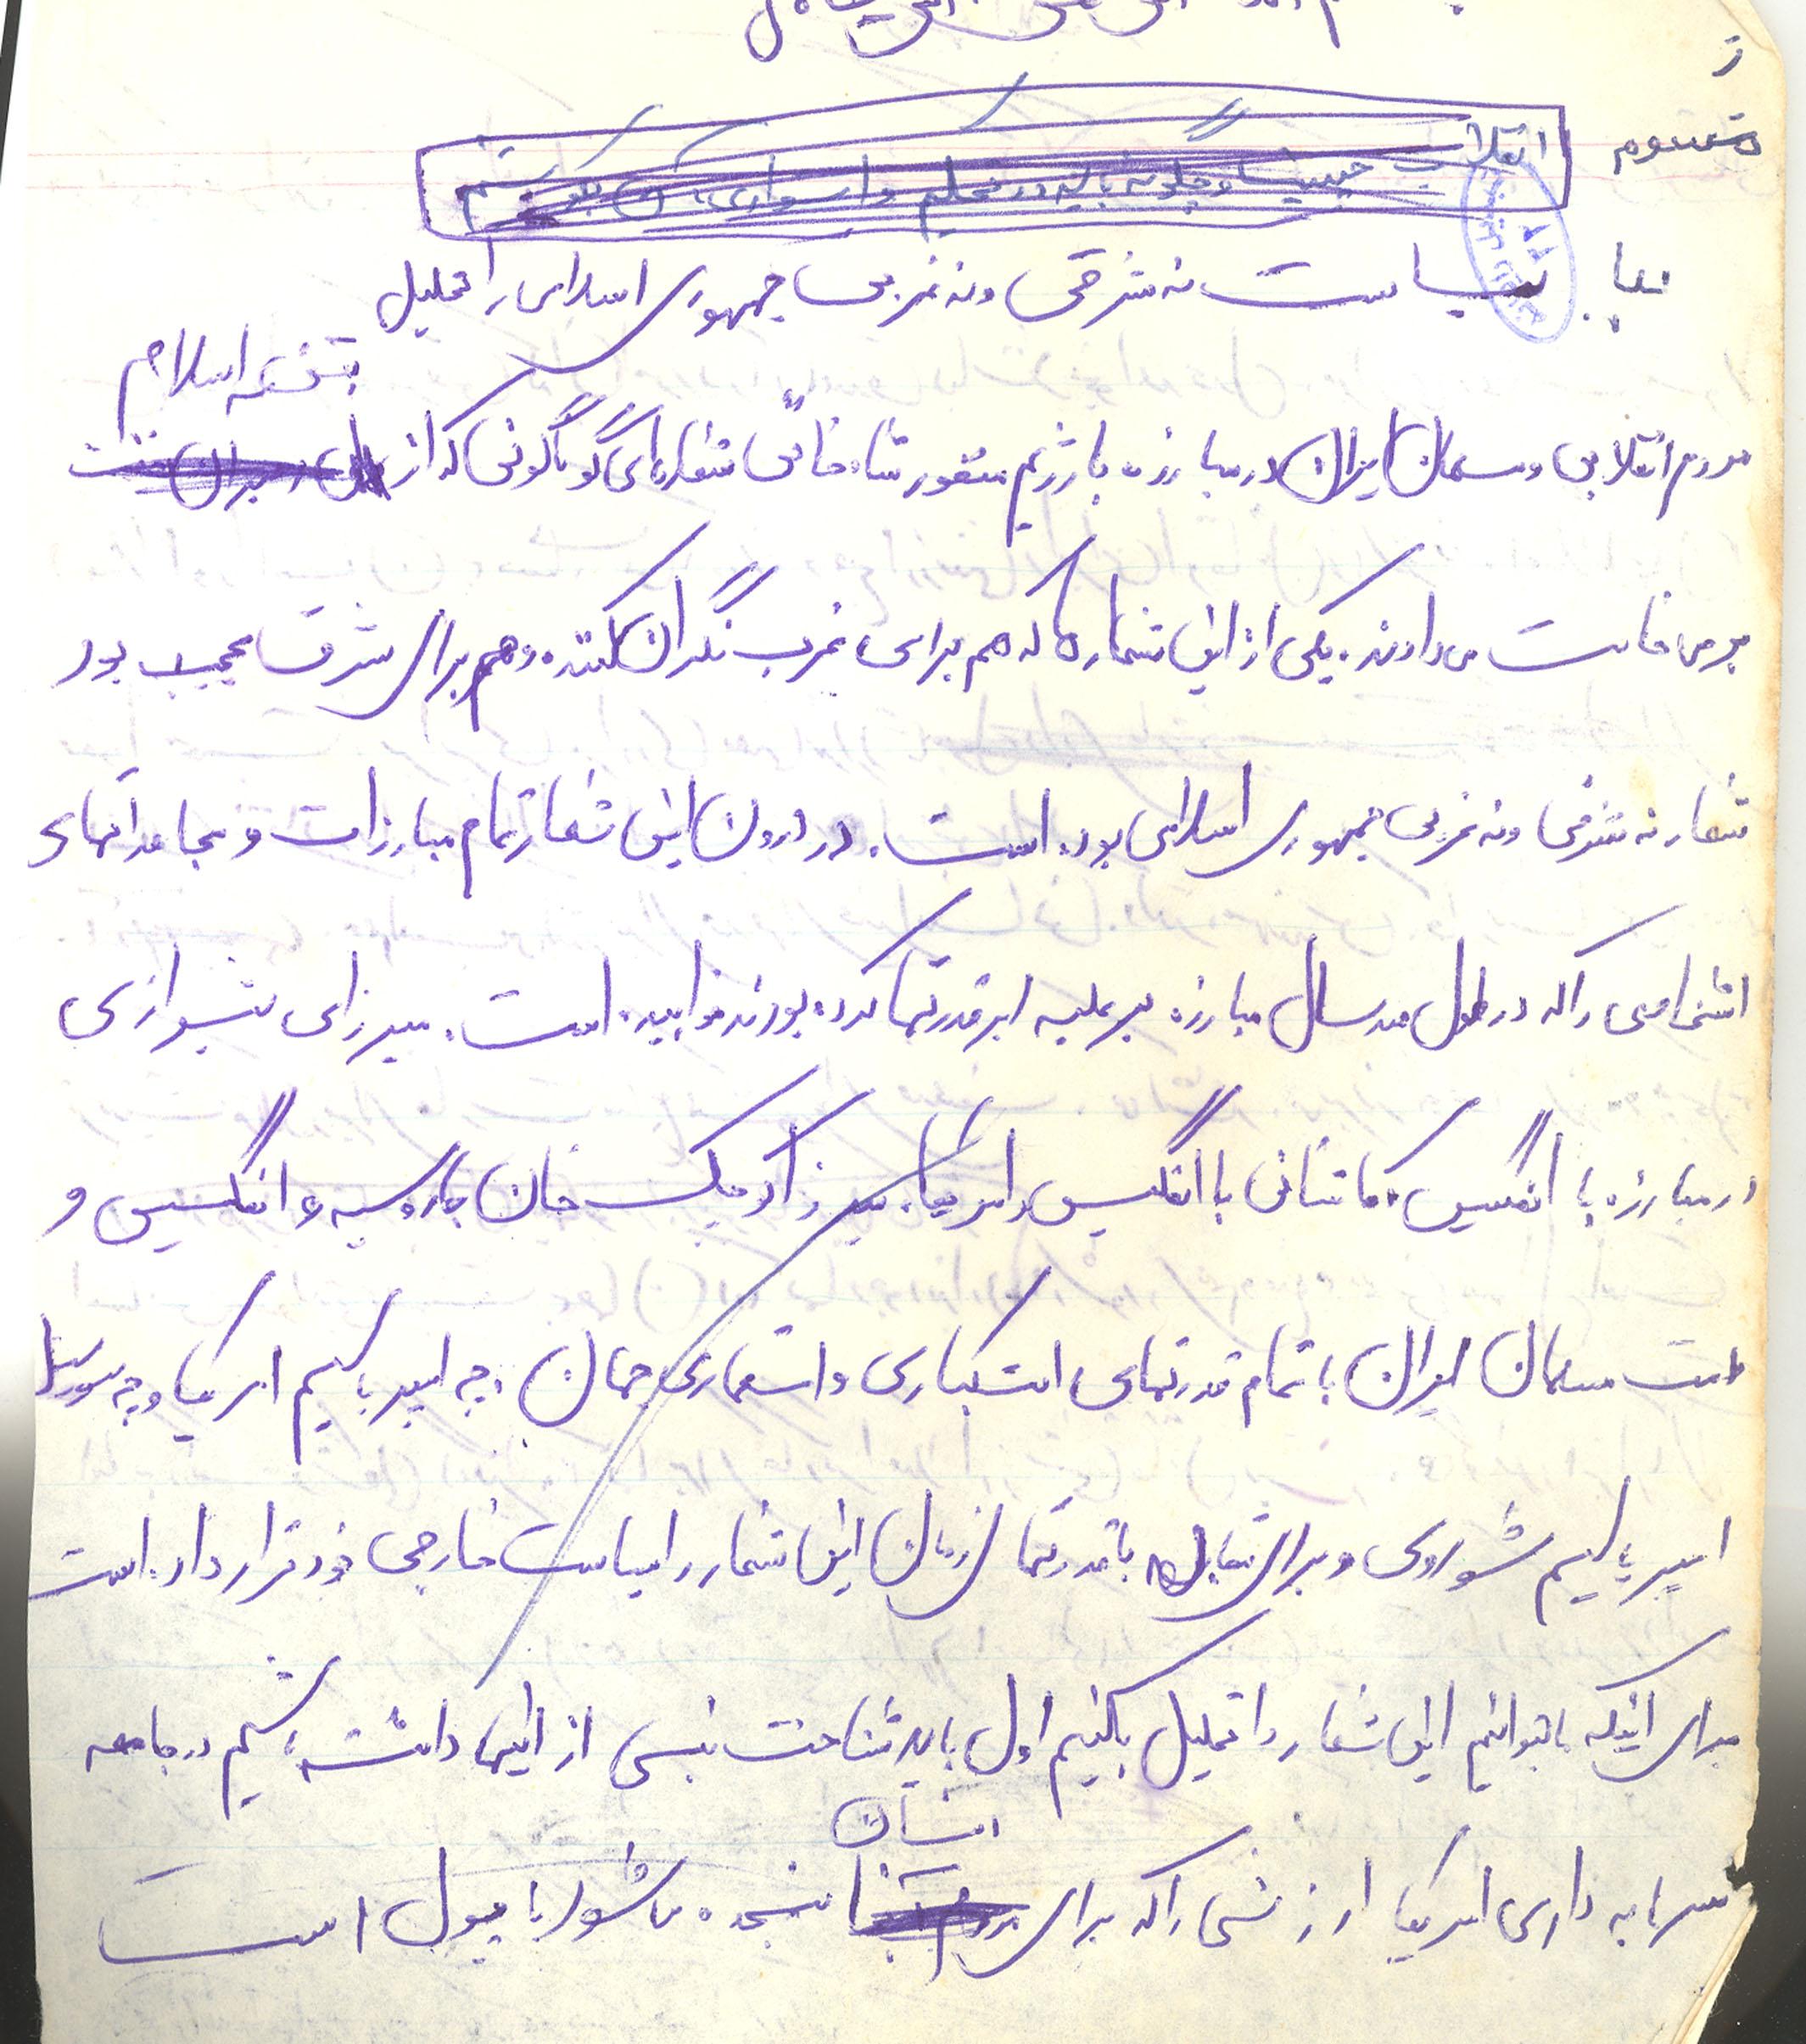 انقلاب چیست و چگونه باید در تحلیم
سیاست نه شرقی ونه غربی جمهوری اسلامی را تحلیل
اسلام
مردم انقلابی ومسلمان ایران درمبارزه بارژیم منفور شاه خائن شعارهای گوناگونی که از
برمی خاست می دادند. یکی از این شعارها که هم برای غرب نگران کننده وهم برای شرق عجیب بود
شعار نه شرقی ونه غربی جمهوری اسلامی بوده است. در درون این شعار تمام مبارزات و مجاهدتهای
اشخاصی راکه درطول صدسال مبارزه برعلیه ابرقدرتها کرده بودند خوابیده است. میرزای شیرازی
درمبارزه با انگلیس. کاشانی با انگلیس وامریکا. میرزا کوچک خان باروسیه و انگلیس و
ملت مسلمان ایران با تمام قدرتهای استکباری واستعماری جهان. چه امپریالیسم امریکا وچه سوسیال
امپریالیسم شوروی و برای مقابله باقدرتها از زمان این شعار را سیاست خارجی خود قرار داده است
برای اینکه بتوانیم این شعار را تحلیل بکنیم اول باید شناخت نسبی از اینها داشته باشیم در جامعه
انسان
سرمایه داری امریکا ارزشی راکه برای می شود با پول است